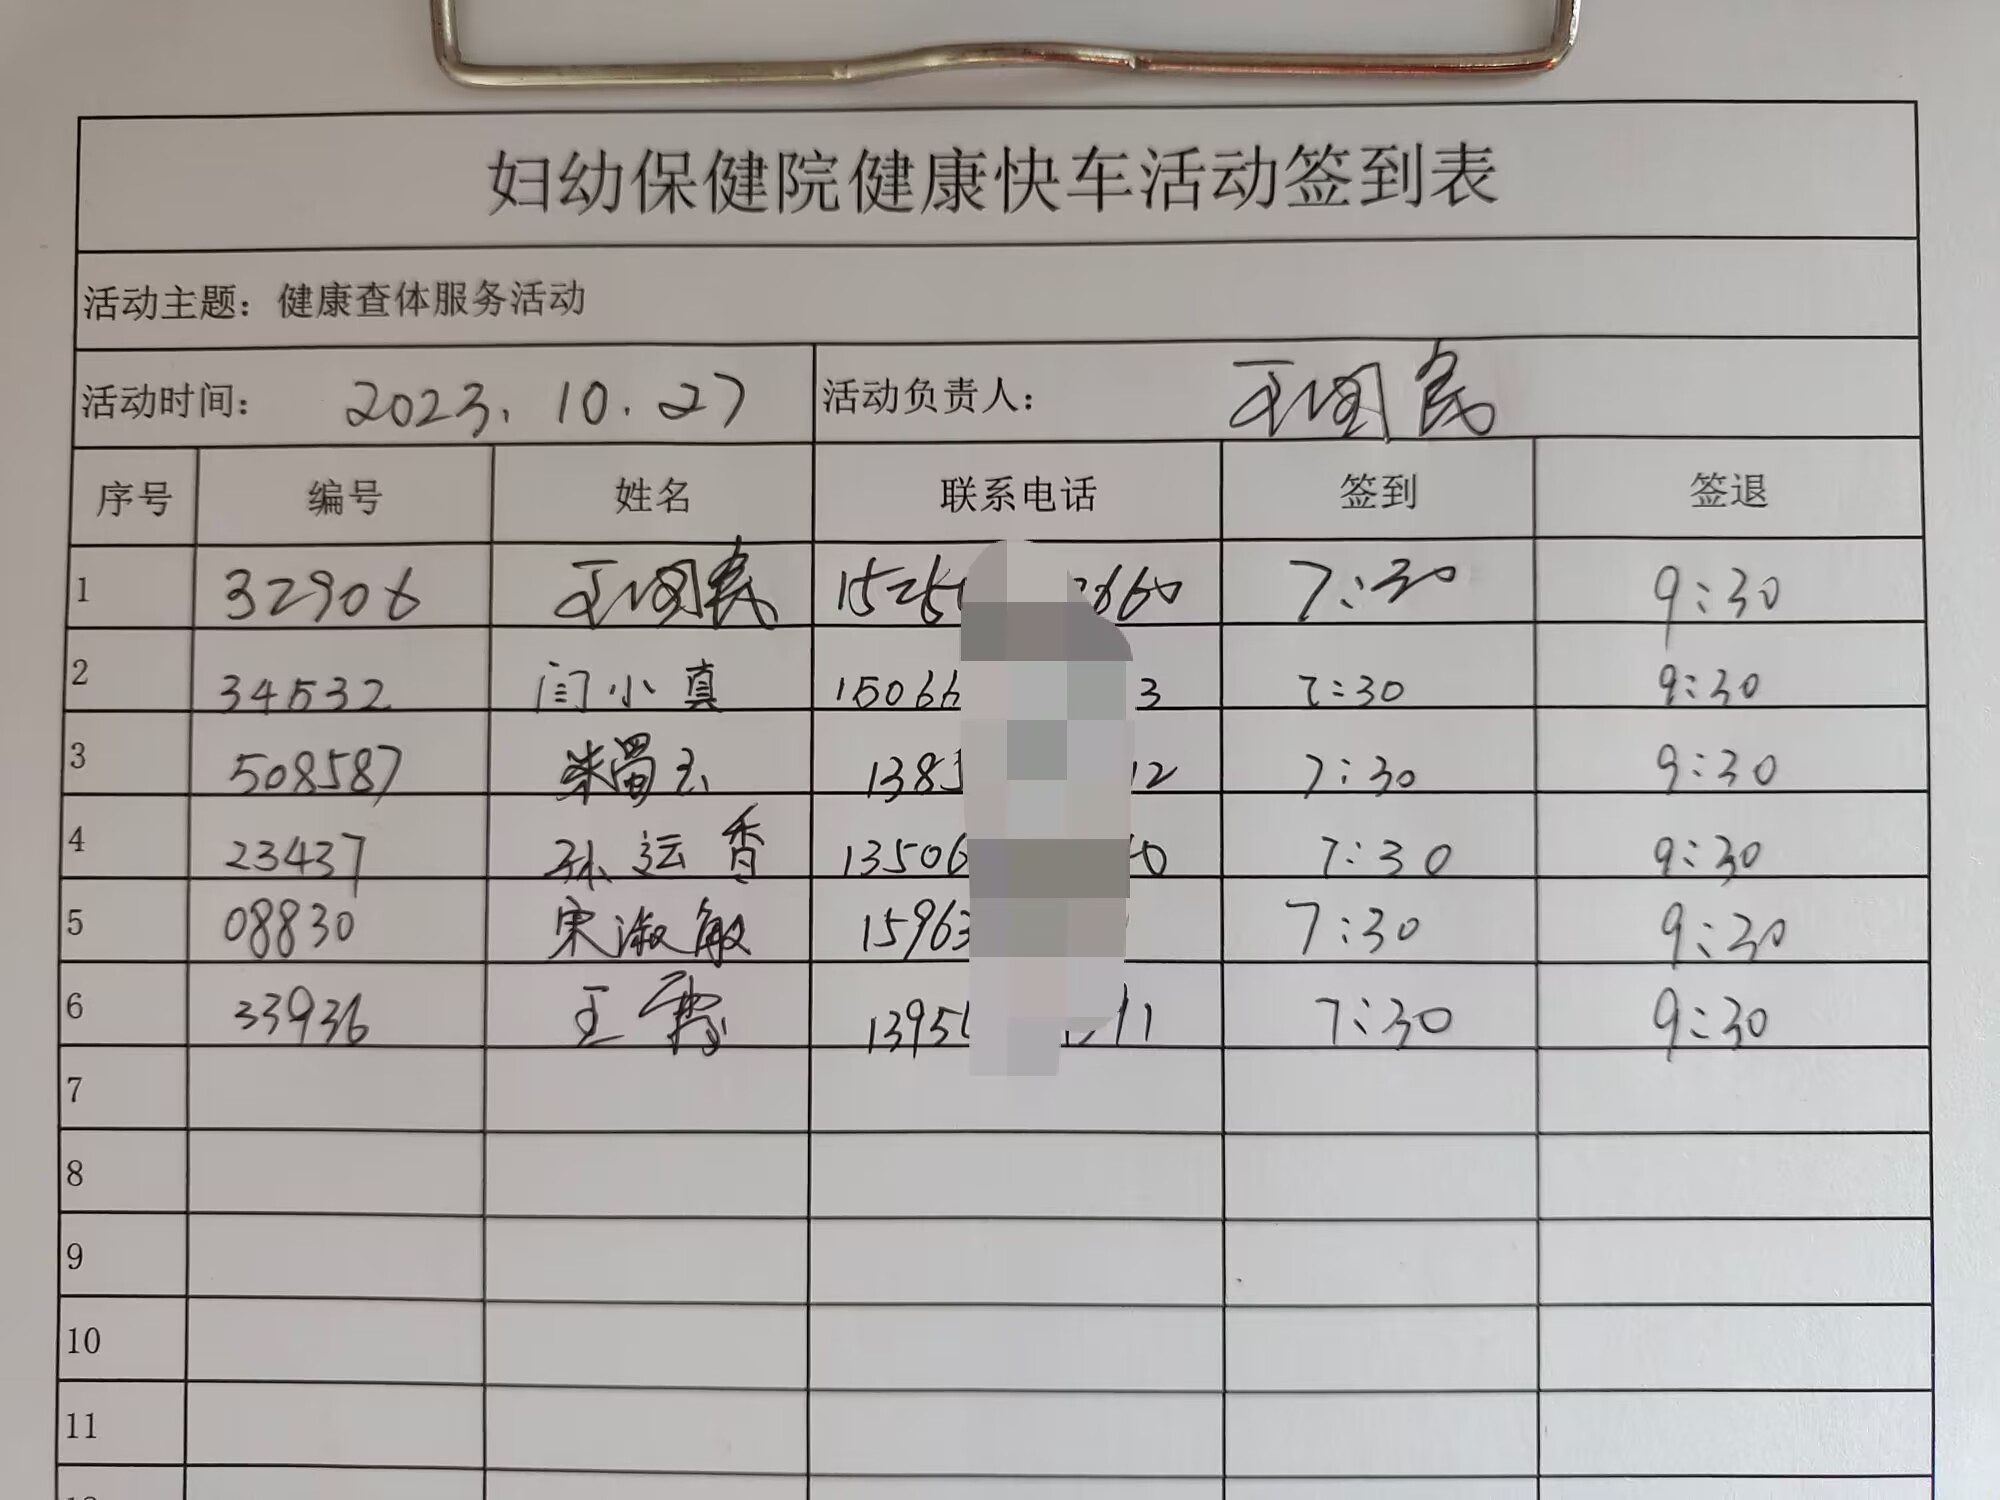 妇幼保健院健康快车活动签到表
活动主题：健康查体服务活动
活动时间： 2023.10.27 活动负责人： 王国民
序号 编号 姓名 联系电话 签到 签退
1 32906 王国民 15256 660 7:30 9:30
2 34532 闫小真 15066 3 7:30 9:30
3 508587 柴蜀玉 1385 12 7:30 9:30
4 23437 孙运香 13506 0 7:30 9:30
5 08830 宋淑敏 15963 7:30 9:30
6 33936 王 1395 11 7:30 9:30
7
8
9
10
11